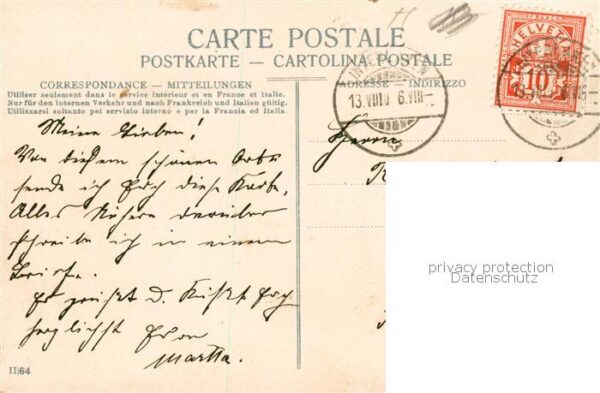 CARTE POSTALE
POSTKARTE — CARTOLINA POSTALE
CORRESPONDANCE — MITTEILUNGEN
ADRESSE — INDIRIZZO
Utiliser seulement dans le service intérieur et en France et Italie.
Nur für den internen Verkehr und nach Frankreich und Italien gültig.
Utilizzarsi soltanto pel servizio interno e per la Francia ed Italia.
FRANCO
HELVETIA
10
13.VIII
Meine Lieben!
Von diesem schönen Orte
sende ich Euch diese Karte,
Alles Nähere darüber
schreibe ich in einem
Briefe.
Es grüßt u. küßt Euch
herzlichst Eure
Martha.
Herrn
privacy protection
Datenschutz
1164